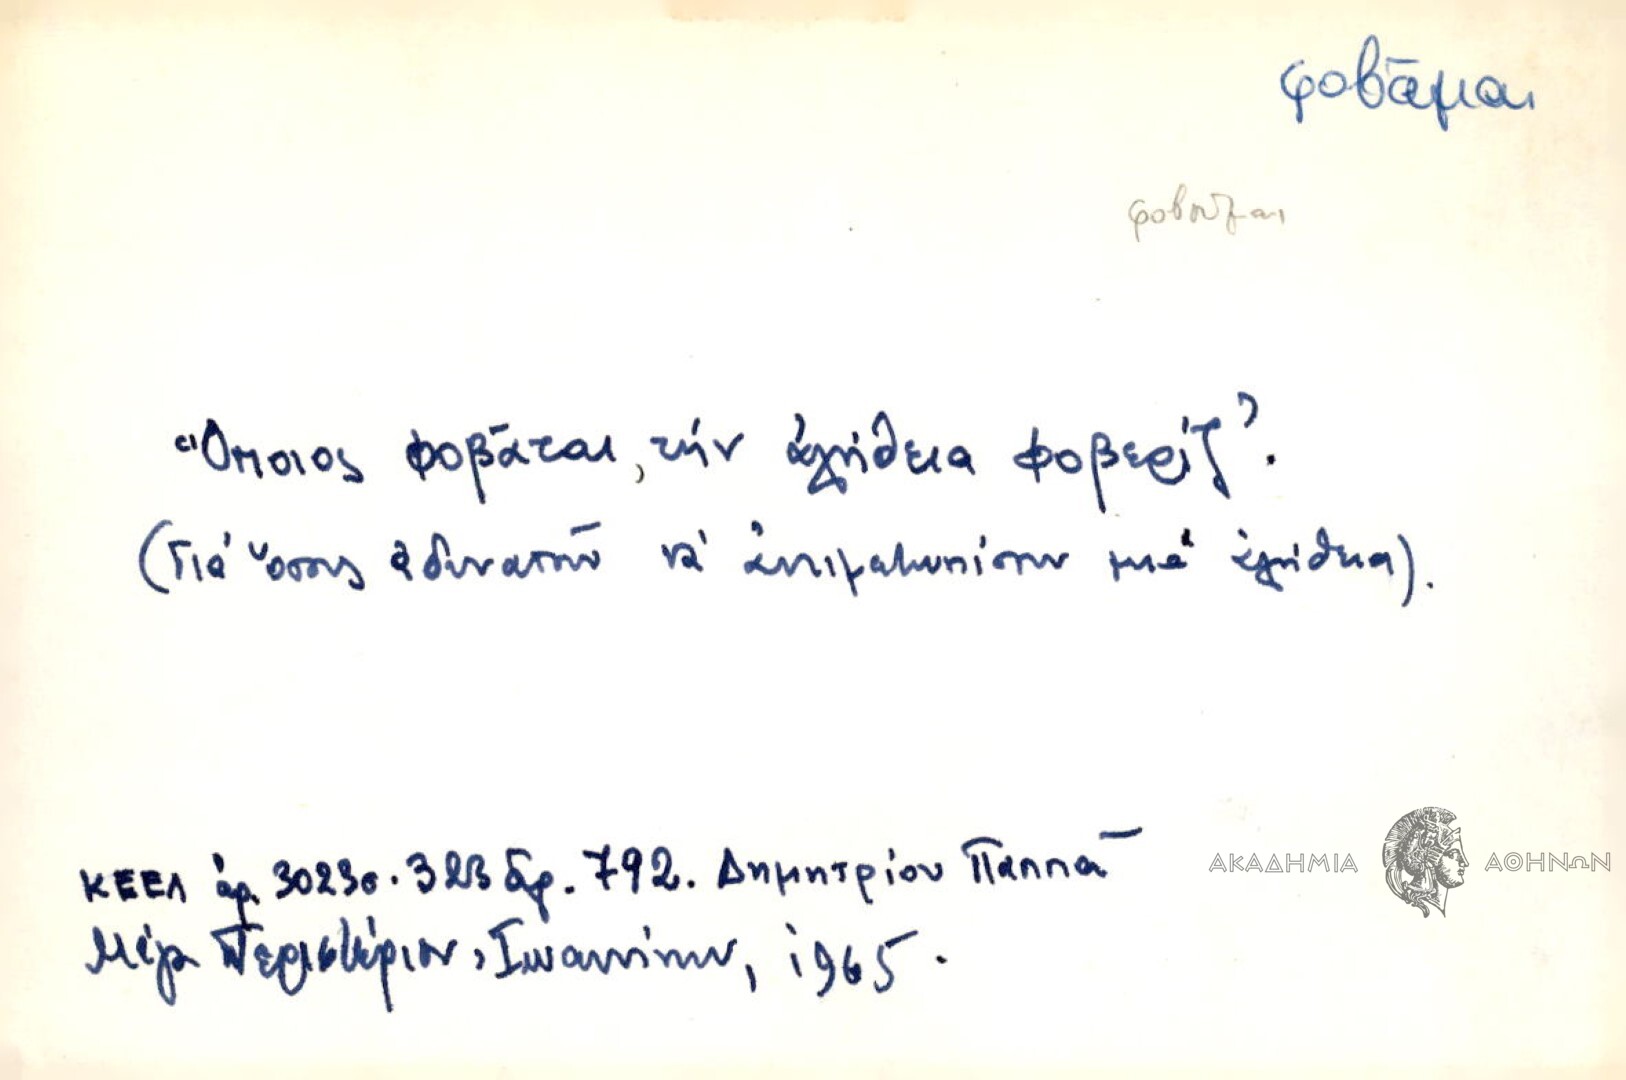 φοβᾶμαι
φοβοῦμαι
"Ὅποιος φοβᾶται, τήν ἀλήθεια φοβερίζ'".
(Γιά ὅσους ἀδυνατοῦν νά ἀντιμετωπίσουν μιά ἀλήθεια).
ΚΕΕΛ ἀρ. 3023 σ. 323 ἀρ. 792. Δημητρίου Παππᾶ
Μέγα Περιστέριον, Ἰωαννίνων, 1965.
ΑΚΑΔΗΜΙΑ ΑΘΗΝΩΝ